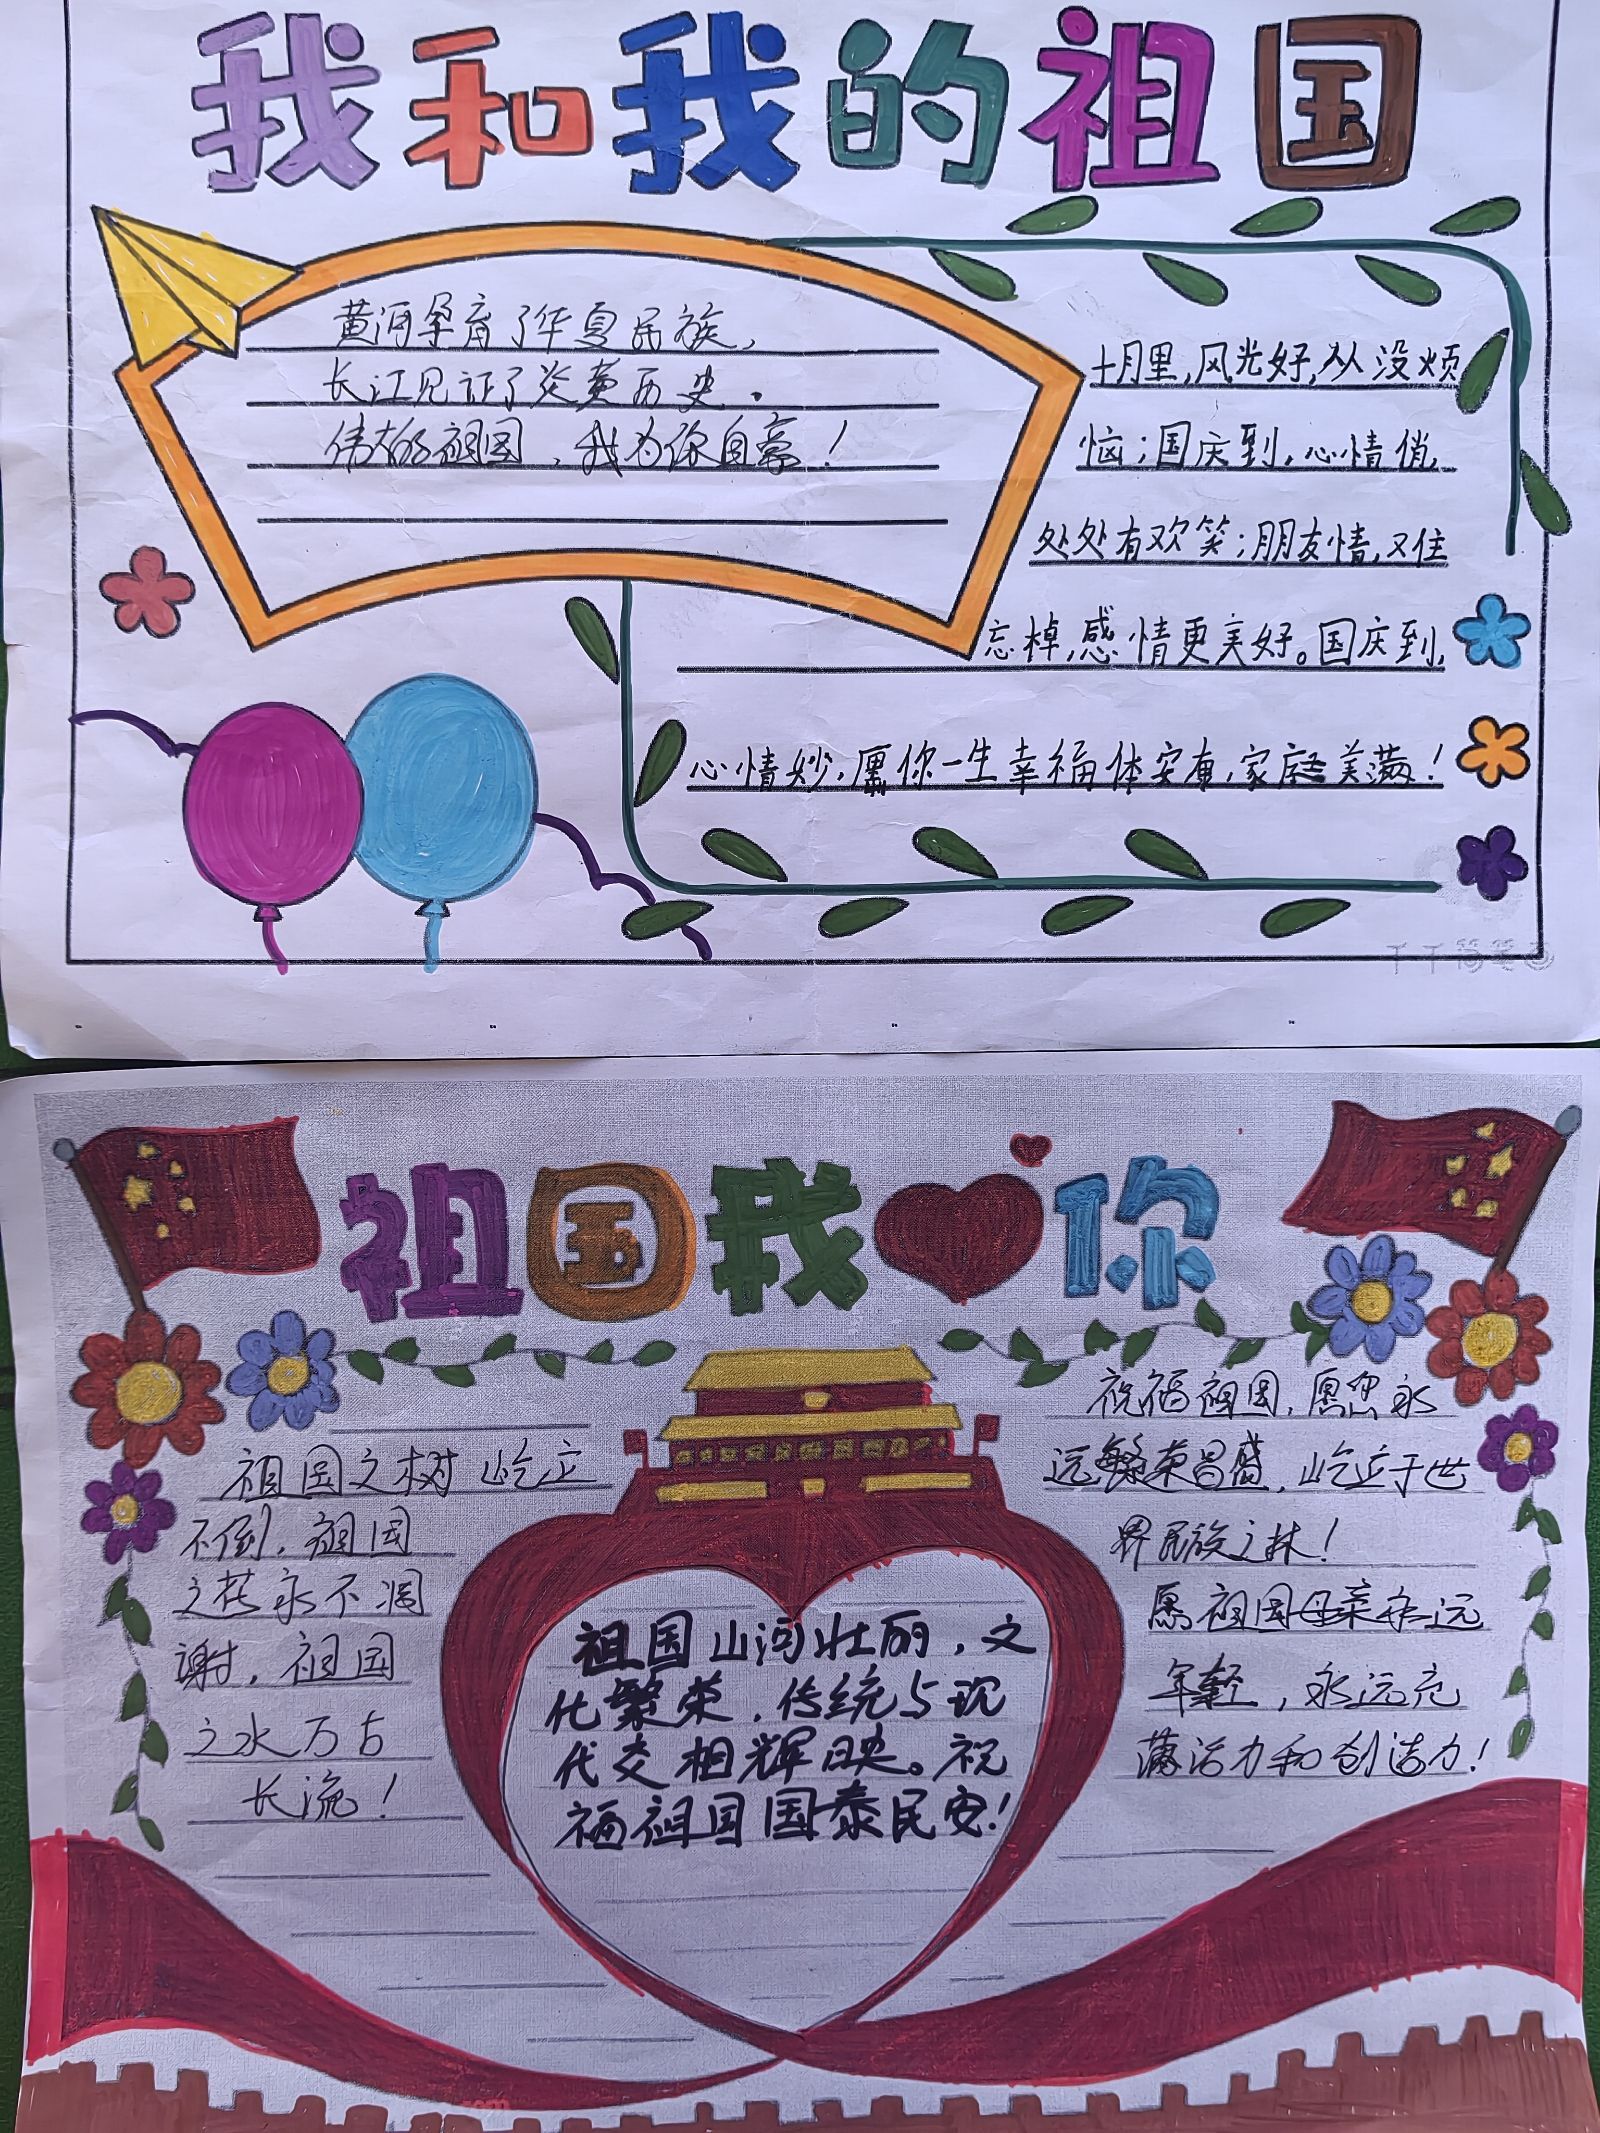 我和我的祖国
黄河孕育了华夏民族，
长江见证了炎黄历史。
伟大的祖国，我为你自豪！
十月里，风光好，从没烦
恼；国庆到，心情俏，
处处有欢笑；朋友情，又住
忘掉，感情更美好。国庆到，
心情妙，愿你一生幸福体安康，家庭美满！
祖国我你
祖国之树屹立
不倒，祖国
之花永不凋
谢，祖国
之水万古
长流！
祖国山河壮丽，文
化繁荣，传统与现
代交相辉映。祝
福祖国国泰民安！
祝福祖国，愿您永
远繁荣昌盛，屹立于世
界民族之林！
愿祖国母亲永远
年轻，永远充
满活力和创造力！